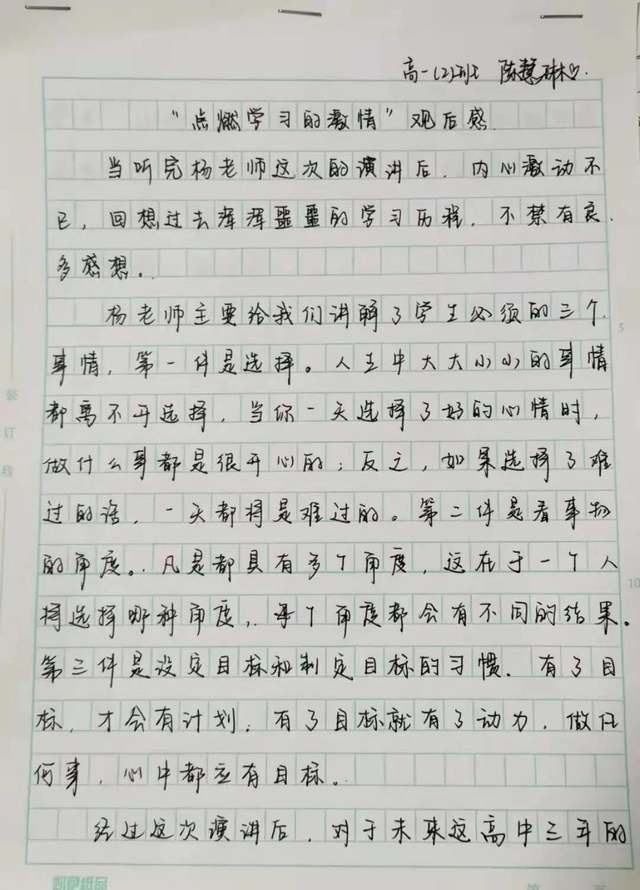 高一(2)班 陈慧琳
“点燃学习的激情”观后感
当听完杨老师这次的演讲后，内心激动不
已，回想过去浑浑噩噩的学习历程，不禁有良
多感想。
杨老师主要给我们讲解了学生必须的三个
事情，第一件是选择。人生中大大小小的事情
都离不开选择，当你一天选择了好的心情时，
做什么事都是很开心的；反之，如果选择了难
过的话，一天都将是难过的。第二件是看事物
的角度。凡是都具有多个角度，这在于一个人
择选择哪种角度，每个角度都会有不同的结果。
第三件是设定目标和制定目标的习惯。有了目
标，才会有计划，有了目标就有了动力，做任
何事，心中都应有目标。
经过这次演讲后，对于未来这高中三年的
装
订
线
5
10